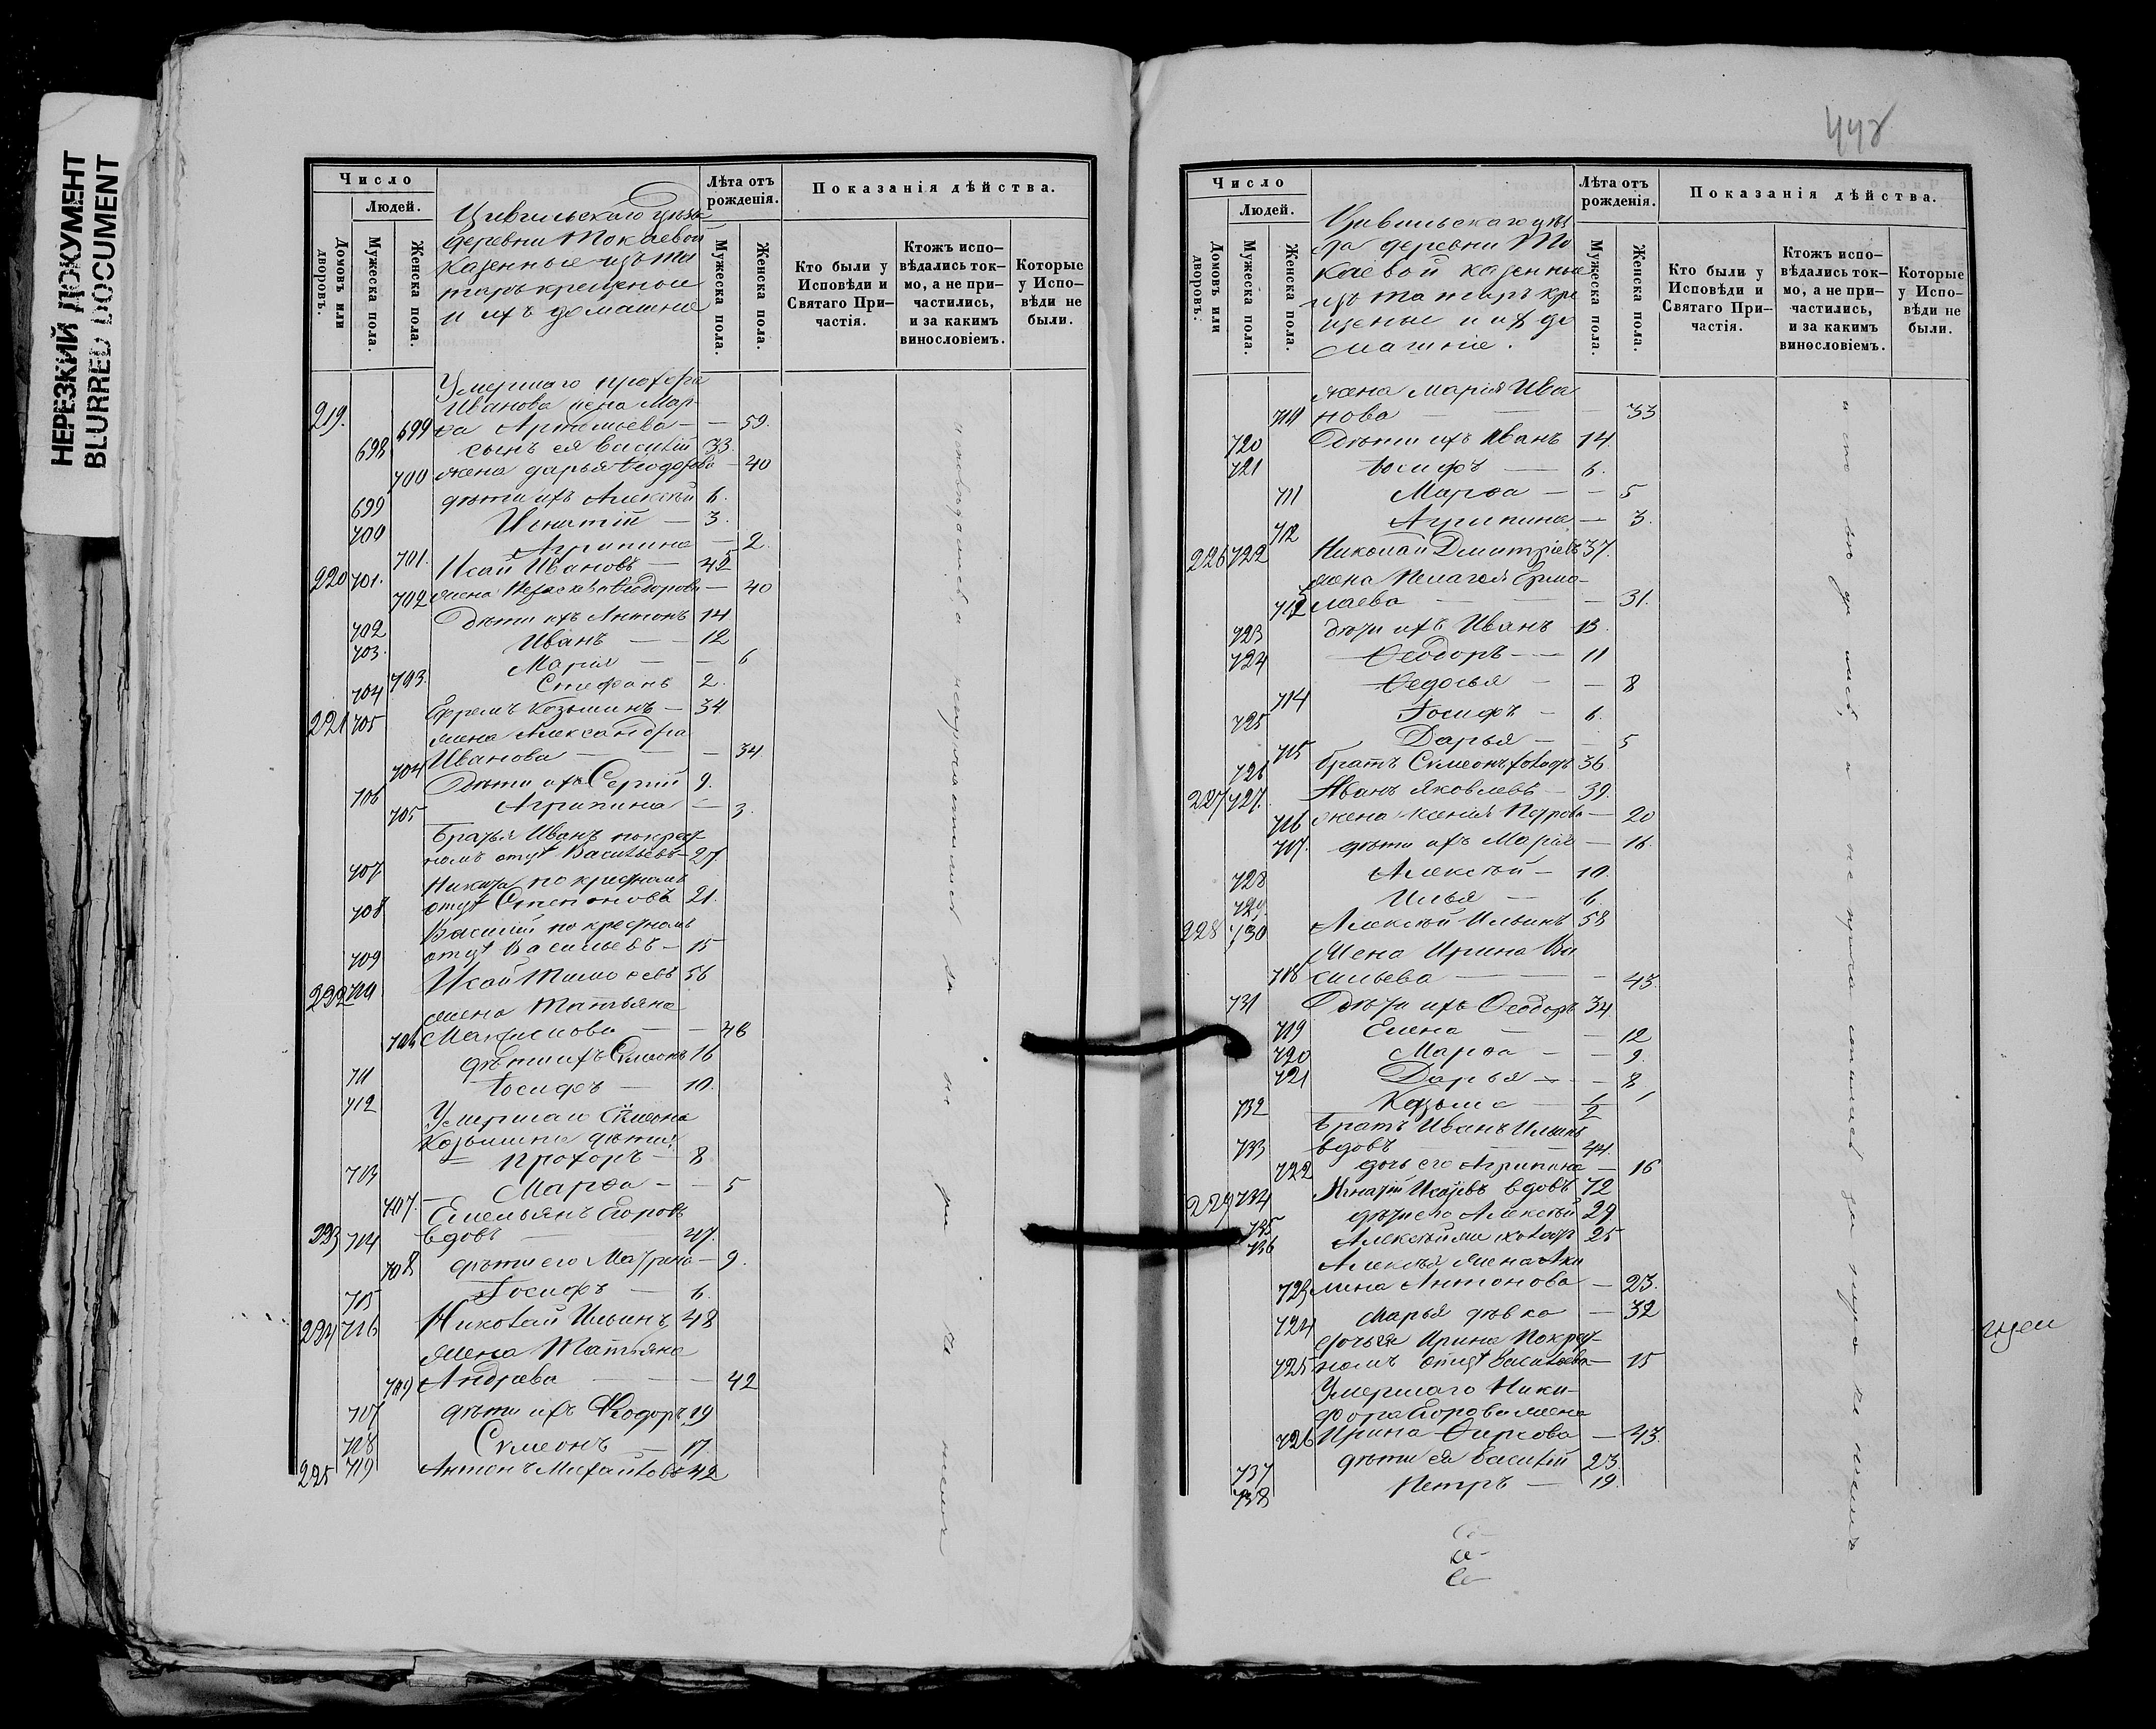 НЕРЕЗКИЙ ДОКУМЕНТ
BLURRED DOCUMENT
Число
Людей.
Домовъ или дворовъ.
Мужеска пола.
Женска пола.
Цивильскаго уѣзда
деревни Токаевой
казенные изъ та
таръ крещеные
и ихъ домашніе
Лѣта отъ рожденія.
Мужеска пола.
Женска пола.
Показанія дѣйства.
Кто были у Исповѣди и Святаго При-частія.
Ктожъ испо-вѣдались ток-мо, а не при-частились, и за какимъ винословіемъ.
Которые у Испо-вѣди не были.
Умершаго Прохора
219. Иванова жена Мар-
699 ѳа Артемьева — — 59.
698 сынъ ея Василій 33.
700 жена Дарья Ѳеодорова — 40
699 дѣти ихъ Алексѣй 6.
700 Игнатій — 3.
701. Агрипина — 2.
220 701. Исай Ивановъ — 42
702 жена Ѳеодорова — 40
702 Дѣти ихъ Антонъ 14
703. Иванъ — — 12
703. Марія — — 6
704 Стефанъ 2.
221 705 Ефремъ Козьминъ — 34
жена Александра
704 Иванова — — — 34.
706 Дѣти ихъ Сергій 9.
705 Агрипина — 3.
Братья Иванъ по крест-
707 номъ отцѣ Васильевъ — 27.
Никита по крестномъ
708 отцѣ Степановъ 21.
Василій по крестномъ
709 отцѣ Васильевъ — 15
222 710 Исай Тимоѳевъ 56
жена Татьяна
706 Максимова — — 46
711 дѣти ихъ Симеонъ 16
712 Іосифъ — 10.
Умершаго Симеона
Козьмина дѣти:
713 Прохоръ — 8
707. Марѳа — — 5
Емельянъ Егоровъ
223 714 вдовъ — 47.
708 дѣти его Матрена — 9.
715 Іосифъ — 6.
224 716 Николай Ильинъ 48
жена Татьяна
709 Андреева — — — 42
717 дѣти ихъ Ѳеодоръ 19
718 Симеонъ — 17.
225 719 Антонъ Михайловъ 42
448
Число
Людей.
Домовъ или дворовъ.
Мужеска пола.
Женска пола.
Цивильскаго уѣз
да деревни То
каевой казенные
изъ татаръ кре
щеные и ихъ до
машніе.
Лѣта отъ рожденія.
Мужеска пола.
Женска пола.
Показанія дѣйства.
Кто были у Исповѣди и Святаго При-частія.
Ктожъ испо-вѣдались ток-мо, а не при-частились, и за какимъ винословіемъ.
Которые у Испо-вѣди не были.
жена Марія Ива
710 нова — — — 33
720 Дѣти ихъ Иванъ 14.
721 Іосифъ — 6.
711 Марѳа — — 5
712 Агрипина — 3.
226 722 Николай Дмитріевъ 37.
жена Пелагея Ермо-
713 лаева — — — 31.
723 дѣти ихъ Иванъ 13.
724 Ѳеодоръ — — 11
714 Ѳедосья — — 8
725 Іосифъ — 6.
715 Дарья — — 5
726 братъ Симеонъ холостъ 36.
227 727. Иванъ Яковлевъ — 39.
716 жена Ксенія Петрова — 20
717. дѣти ихъ Марія — 16.
728 Алексѣй — 10.
729. Илья — 6.
228 730 Алексѣй Ильинъ 58
Жена Ирина Ва
718 сильева — — — 43.
731 Дѣти ихъ Ѳеодоръ 34.
719 Елена — — 12
720 Марѳа — — 9.
721 Дарья — — 8
732 Козьма — 1/2
Братъ Иванъ Ильинъ
733 вдовъ — 44.
722 дочь его Агрипина — 16
229 734 Игнатій Исаевъ вдовъ 72
735 дѣти его Алексѣй 29
736 Алексѣй же холостъ 25
Алексѣя жена Аки
723 лина Антонова — 23.
724 Марья дѣвка — 32
дочь ея Ирина по крест-
725 номъ отцѣ Васильева — 15
Умершаго Ники-
фора Егорова жена
726 Ирина Ѳирсова — 43.
737 дѣти ея Василій 23.
738 Петръ — 19.